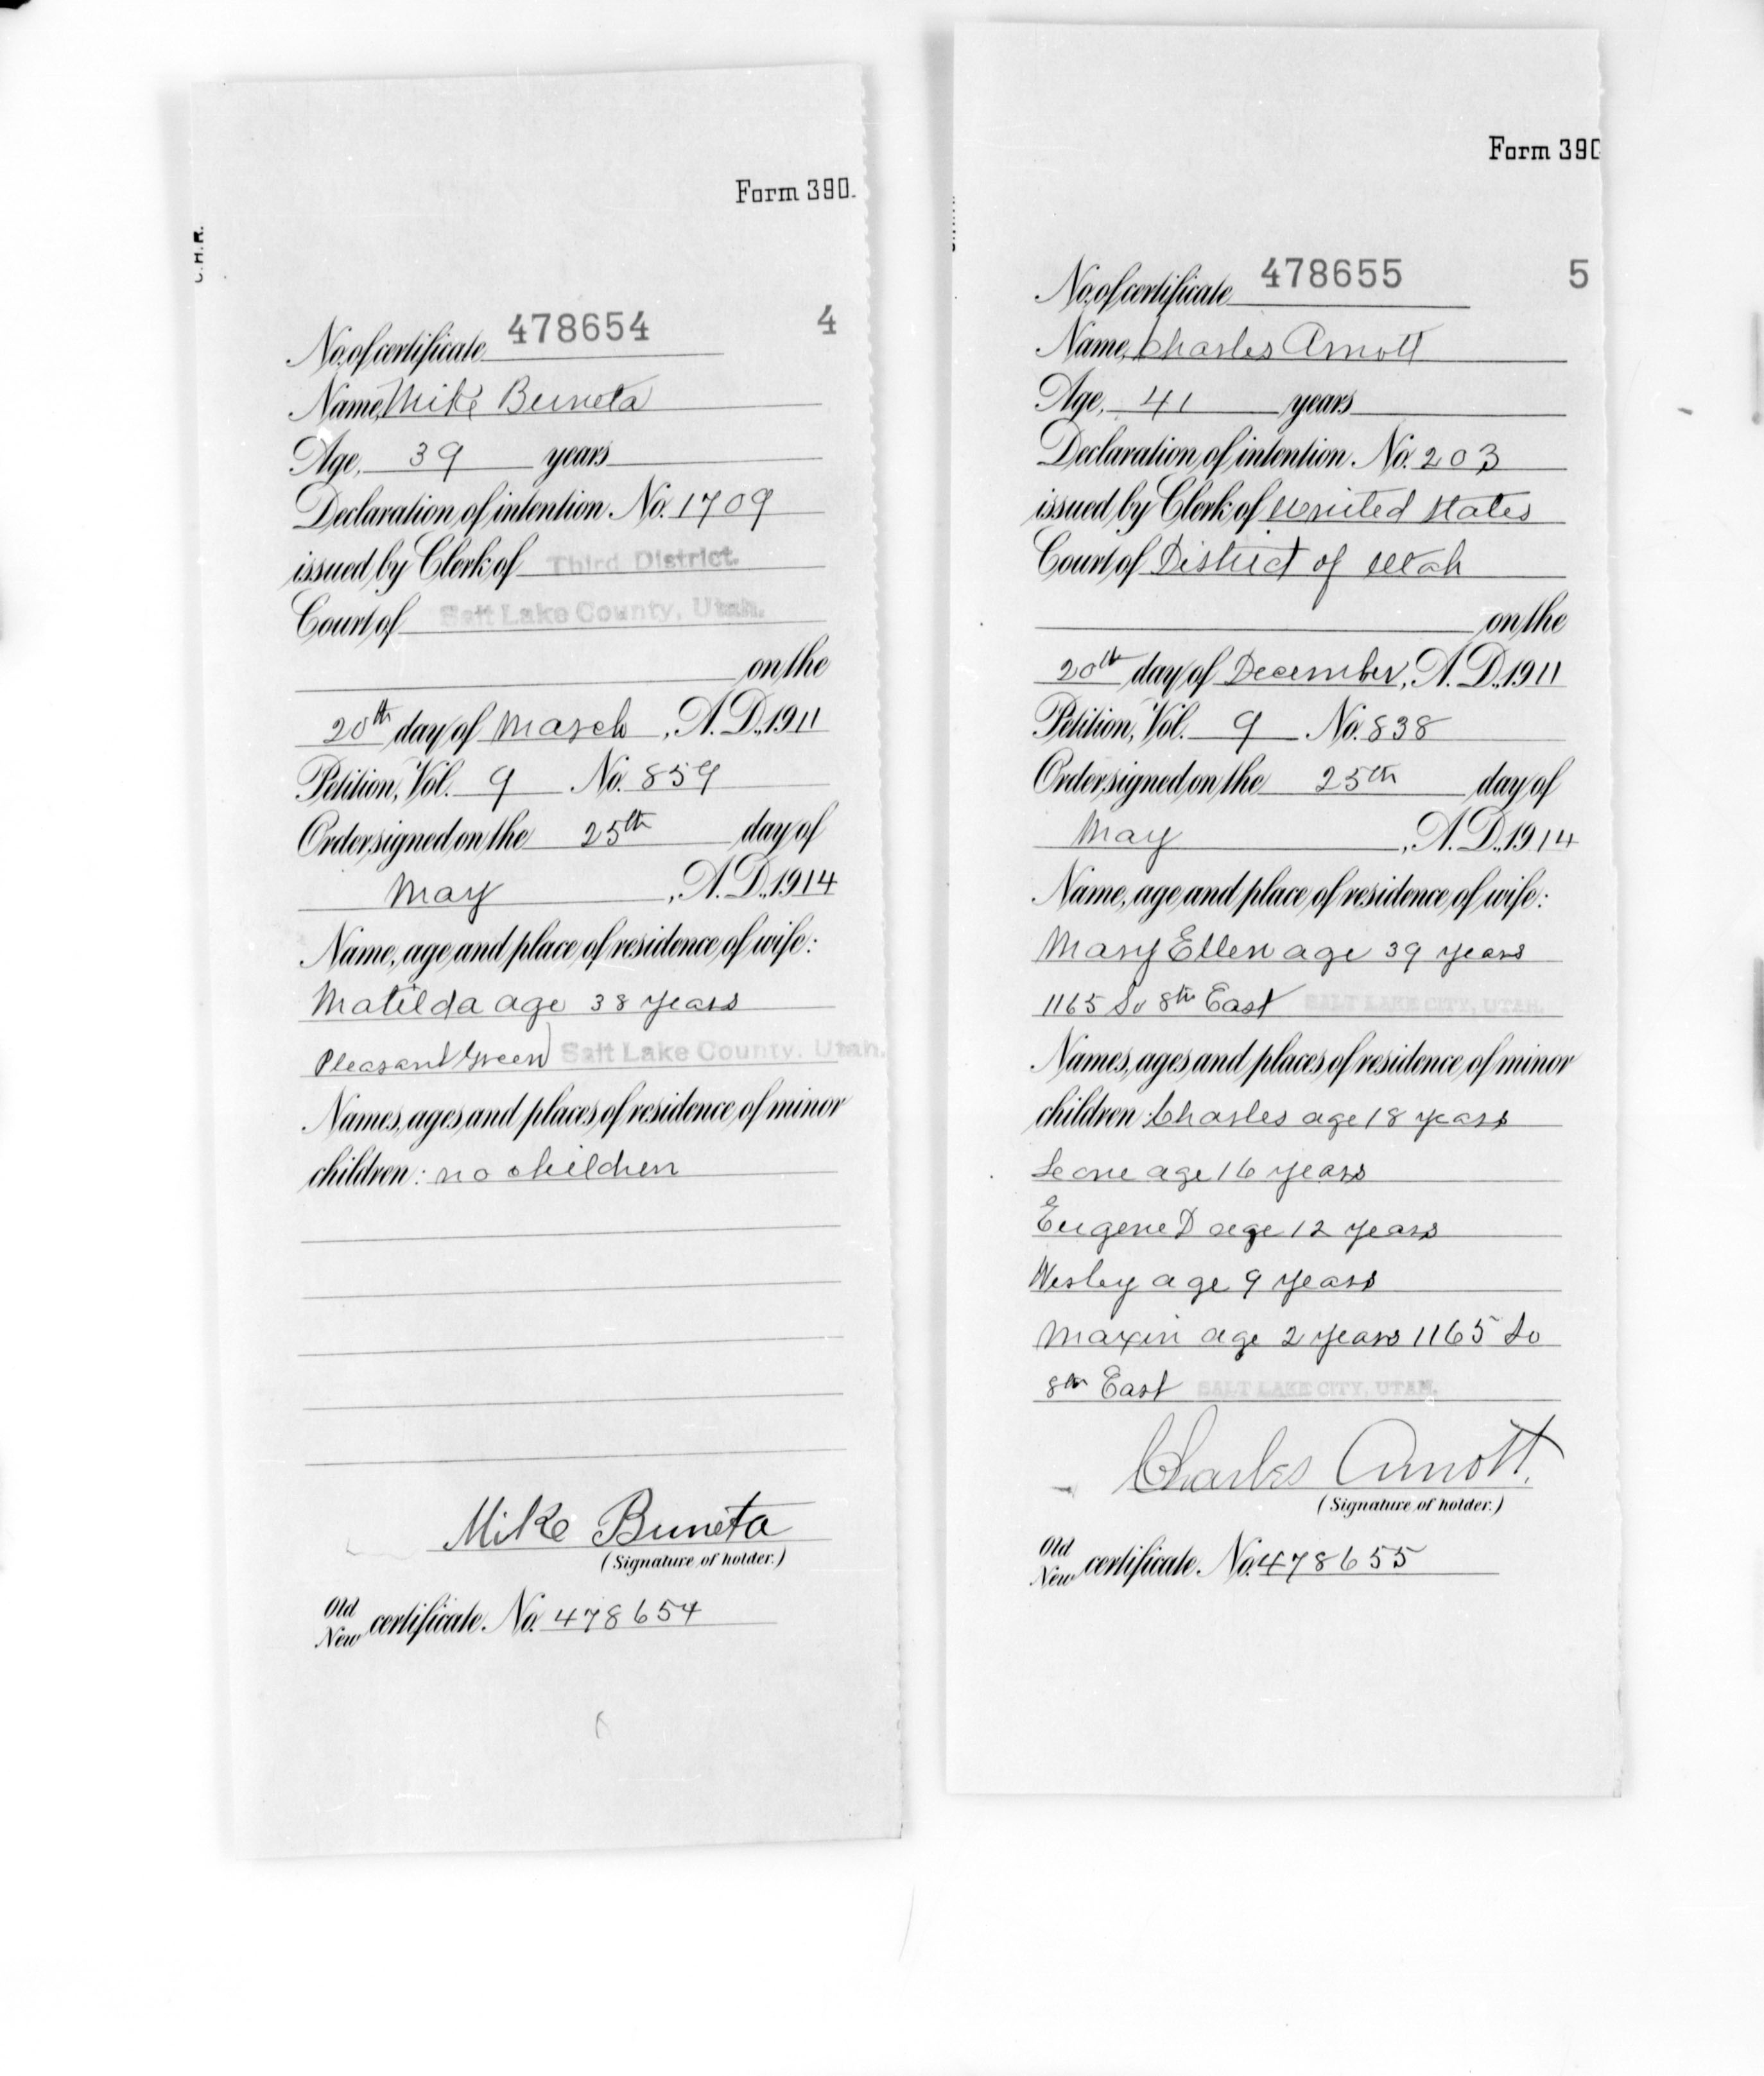 Form 390.
C.H.R.
No. of certificate 478654 4
Name, Mike Buneta
Age, 39 years
Declaration of intention. No. 1709
issued by Clerk of Third District.
Court of Salt Lake County, Utah.
on the
20th day of March, A. D., 1911
Petition, Vol. 9 No. 859
Order signed on the 25th day of
May, A. D., 1914
Name, age and place of residence of wife:
Matilda age 38 years
Pleasant Green Salt Lake County, Utah.
Names, ages and places of residence of minor
children: no children
Mike Buneta
(Signature of holder.)
Old
New certificate. No. 478654
Form 390
No. of certificate 478655 5
Name, Charles Arnott
Age, 41 years
Declaration of intention. No. 203
issued by Clerk of United States
Court of District of Utah
on the
20th day of December, A. D., 1911
Petition, Vol. 9 No. 838
Order signed on the 25th day of
May, A. D., 1914
Name, age and place of residence of wife:
Mary Ellen age 39 years
1165 So 8th East SALT LAKE CITY, UTAH.
Names, ages and places of residence of minor
children: Charles age 18 years
Leone age 16 years
Eugene D age 12 years
Wesley age 9 years
Maxin age 2 years 1165 So
8th East SALT LAKE CITY, UTAH.
Charles Arnott.
(Signature of holder.)
Old
New certificate. No. 478655